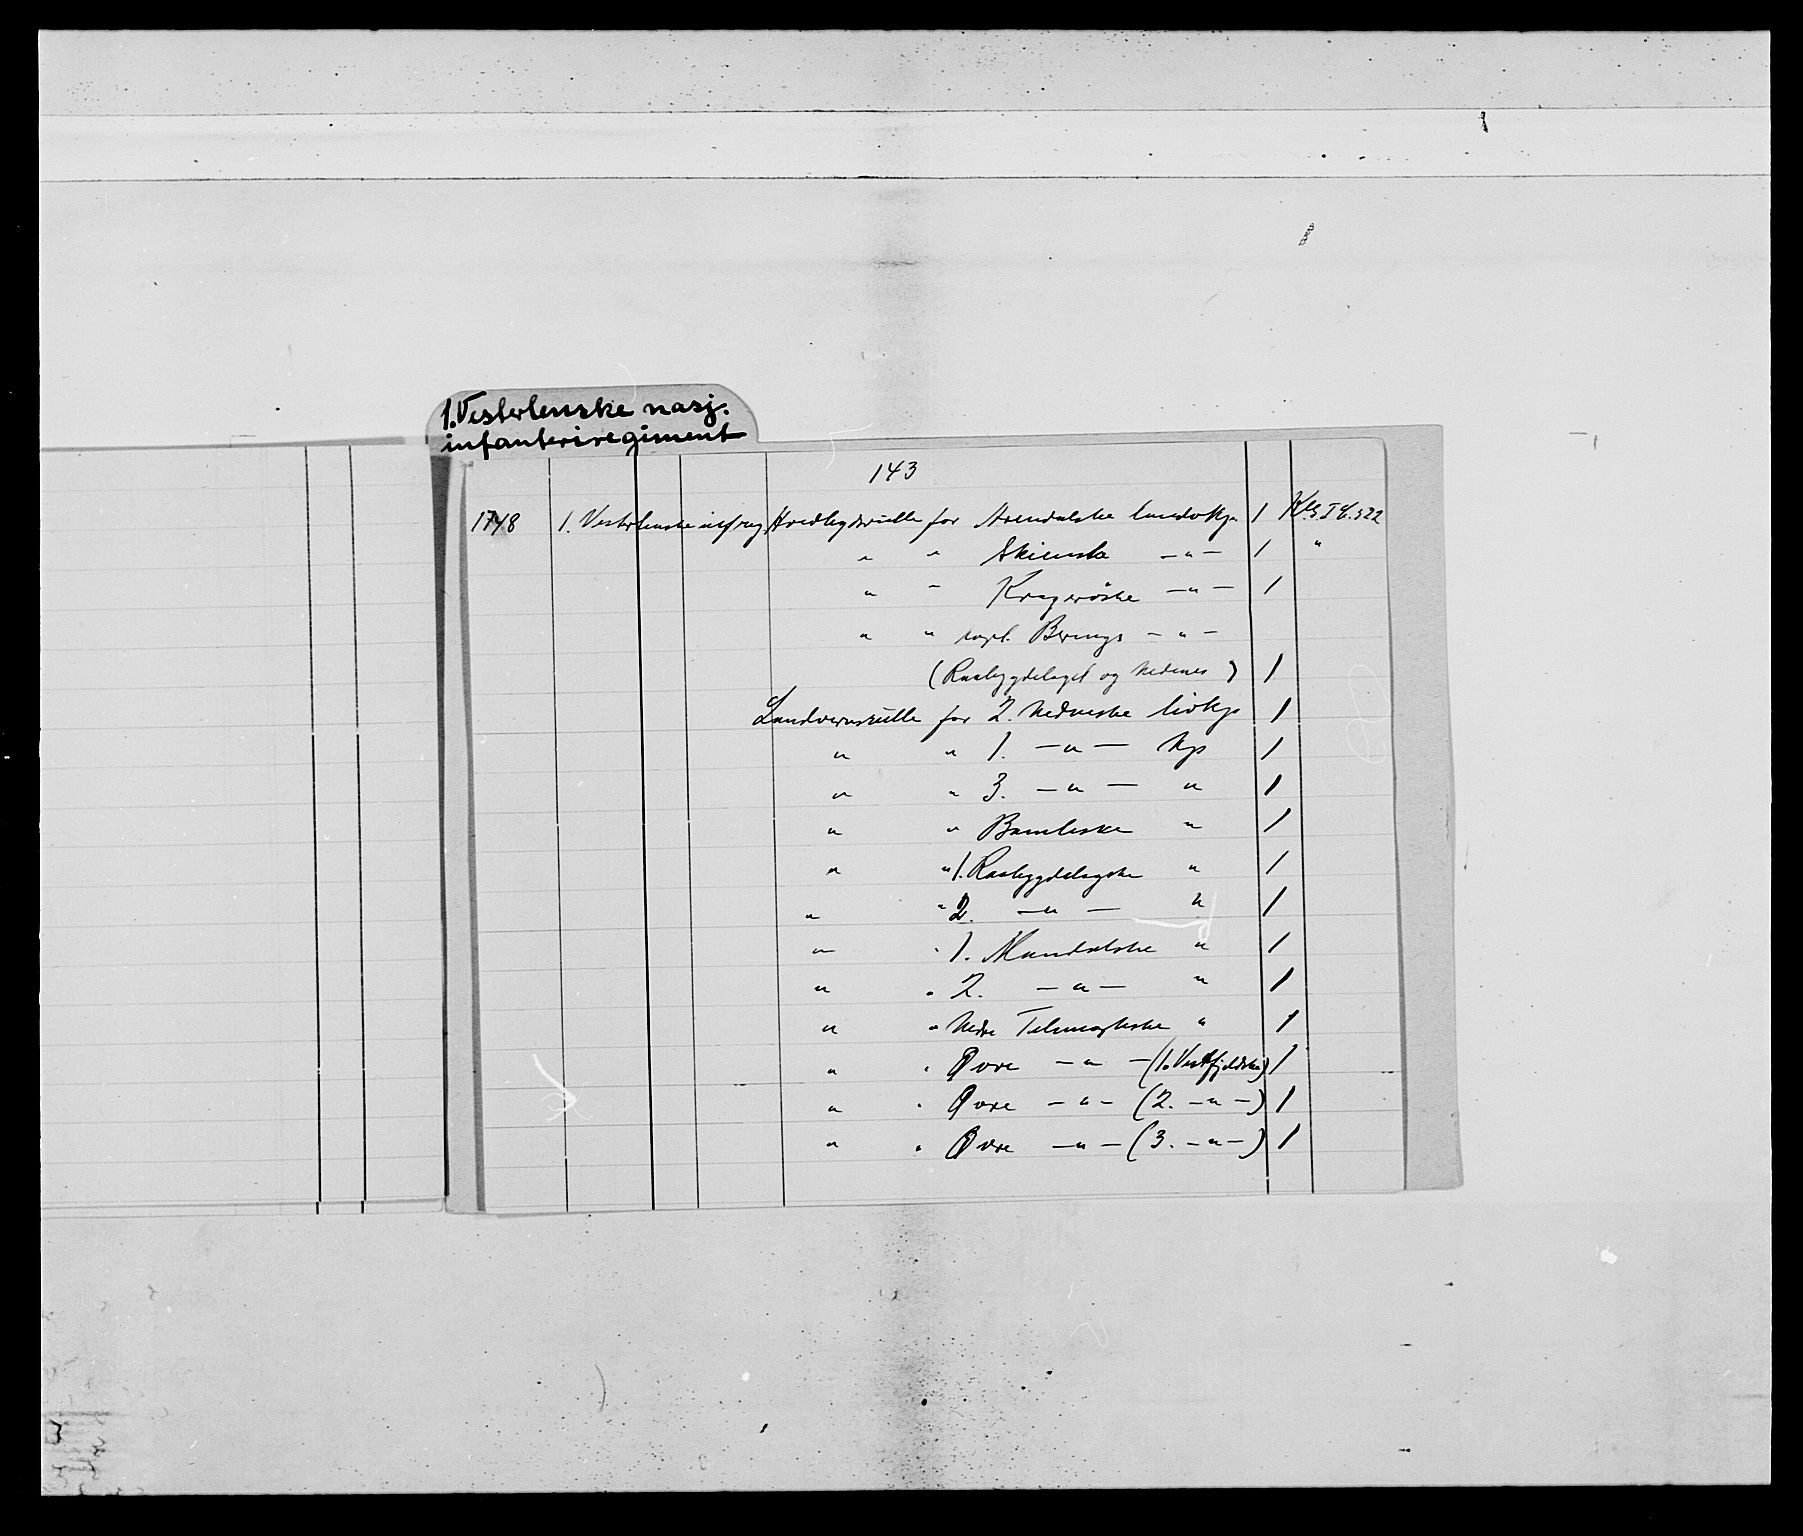 1. Vesterlenske nasj.
infanteriregiment
143
1748 1. Vesterlenske inf reg. Hovedlegdsrulle for Arendalske landvkp. 1
" " Skienske —"— 1 "
" " Kragerøske —"— 1
" " capt. Berings —"—
(Raabygdelaget og Nedenes) 1
Landvernsrulle for 2. Nedneske livkp 1
" " 1. —"— kp 1
" " 3. —"— " 1
" " Bambleske " 1
" " 1. Raabygdelagske " 1
" " 2. —"— " 1
" " 1. Mandalske " 1
" " 2. —"— " 1
" " Nedre Telemarkske " 1
" " Øvre —"— (1. Vestfjeldske) 1
" " Øvre —"— (2. —"—) 1
" " Øvre —"— (3. —"—) 1